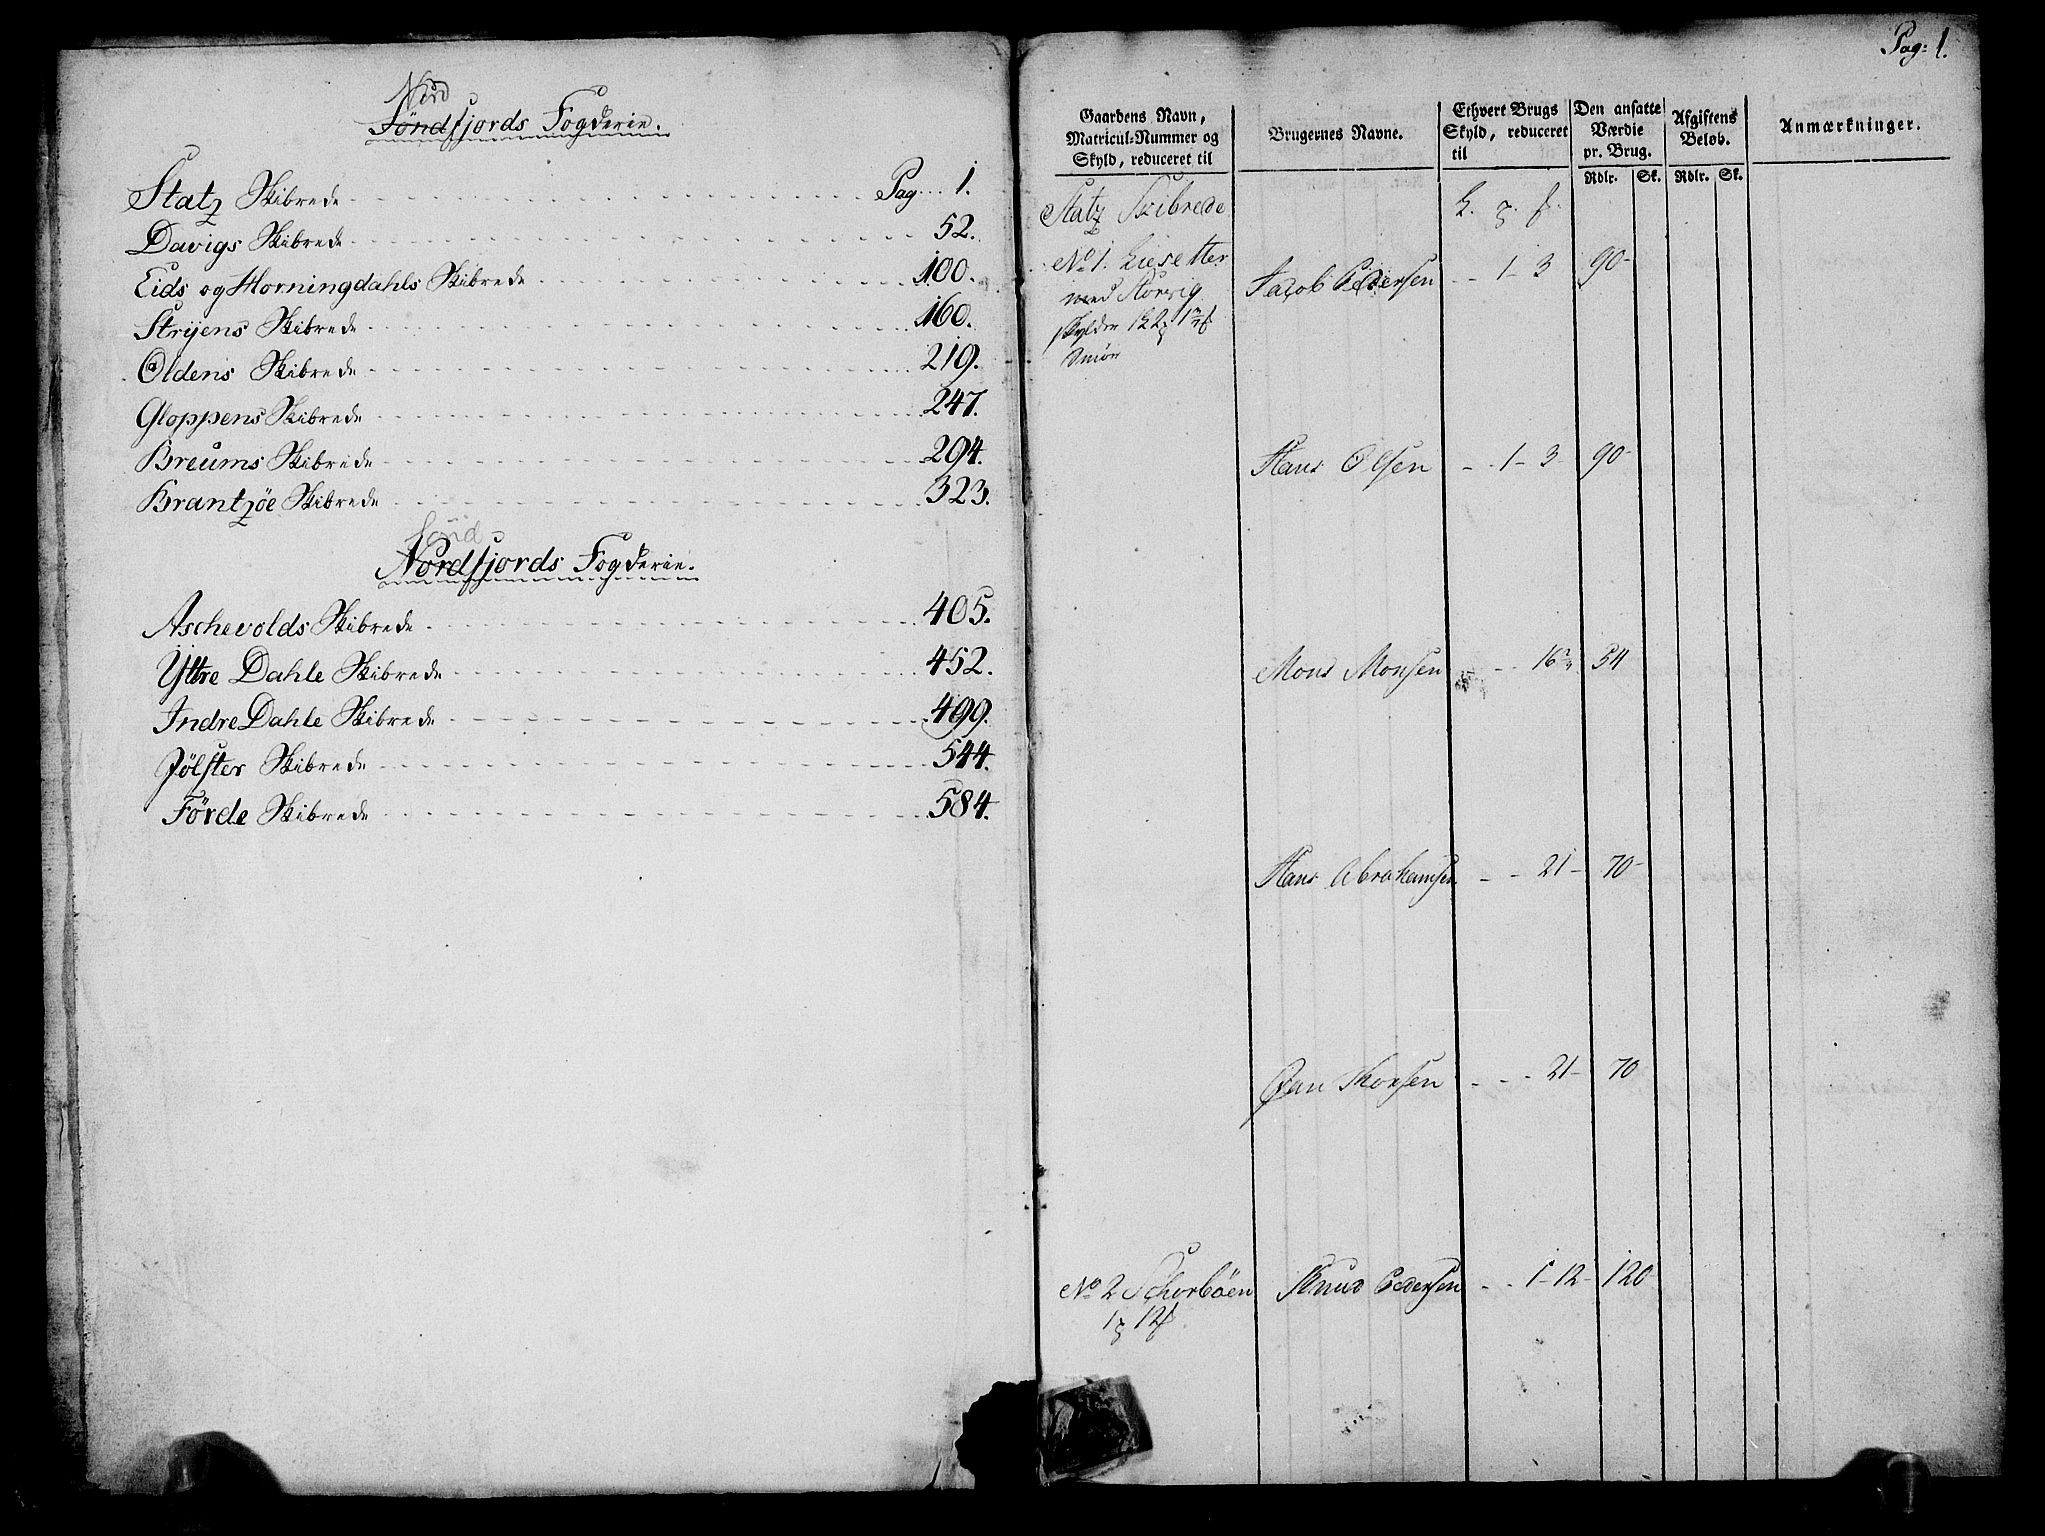 Nord
Söndfjords Fogderie.
Statz Skibrede Pag 1.
Davigs Skibrede 52.
Eids og Horningdahls Skibrede 100.
Stryens Skibrede 160.
Oldens Skibrede 219.
Gloppens Skibrede 247.
Breums Skibrede 294.
Brantzöe Skibrede 323.
Sönd
Nordfjords Fogderie.
Aschevolds Skibrede 405.
Yttre Dahle Skibrede 452.
Indre Dahle Skibrede 499.
Jölster Skibrede 544.
Förde Skibrede 584.
Pag: 1.
Gaardens Navn,
Matricul-Nummer og
Skyld, reduceret til
Brugernes Navne.
Ethvert Brugs
Skyld, reduceret
til
Den ansatte
Værdie
pr. Brug.
Rdlr. Sk.
Afgiftens
Beløb.
Rdlr. Sk.
Anmærkninger.
Statz Skibrede
No 1. Liesetter Jacob Pedersen 1 - 3 90
med Storvig
skylder
Smör
Hans Olsen 1 - 3 90
Mons Monsen 16 54
Hans Abrahamsen 21 70
21 70
No 2 Schorböen Knud Pedersen 1 - 12 120
1 12